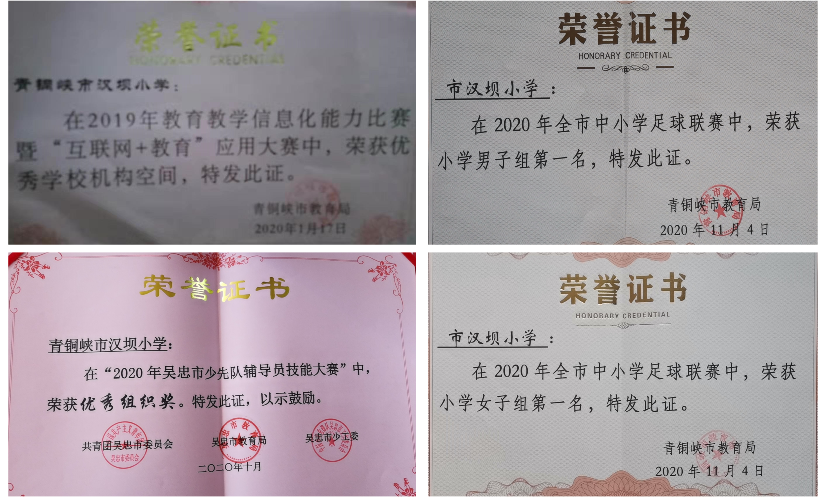 荣誉证书
HONORARY CREDENTIAL
青铜峡市汉坝小学：
在2019年教育教学信息化能力比赛
暨“互联网+教育”应用大赛中，荣获优
秀学校机构空间，特发此证。
青铜峡市教育局
2020年1月17日
荣誉证书
HONORARY CREDENTIAL
市汉坝小学：
在 2020 年全市中小学足球联赛中，荣获
小学男子组第一名，特发此证。
青铜峡市教育局
2020 年 11 月 4 日
荣誉证书
青铜峡市汉坝小学：
在“2020 年吴忠市少先队辅导员技能大赛”中，
荣获优秀组织奖。特发此证，以示鼓励。
共青团吴忠市委员会 吴忠市教育局 吴忠市少工委
二〇二〇年十月
荣誉证书
HONORARY CREDENTIAL
市汉坝小学：
在 2020 年全市中小学足球联赛中，荣获
小学女子组第一名，特发此证。
青铜峡市教育局
2020 年 11 月 4 日